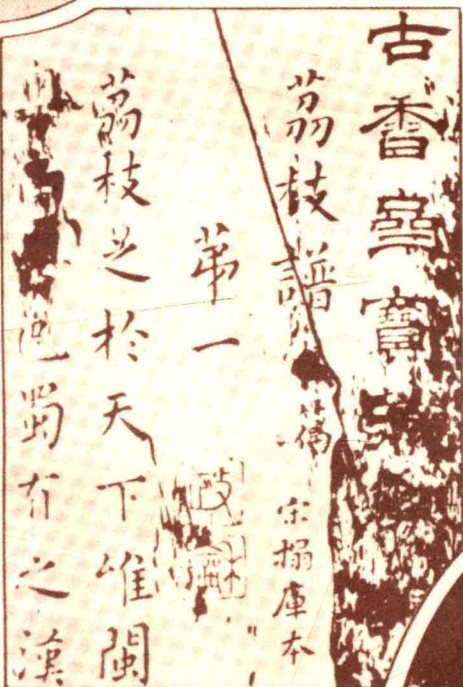 古香齋寶
茘枝譜
宋搨庫本
苐一
茘枝之於天下唯閩
巴蜀有之漢